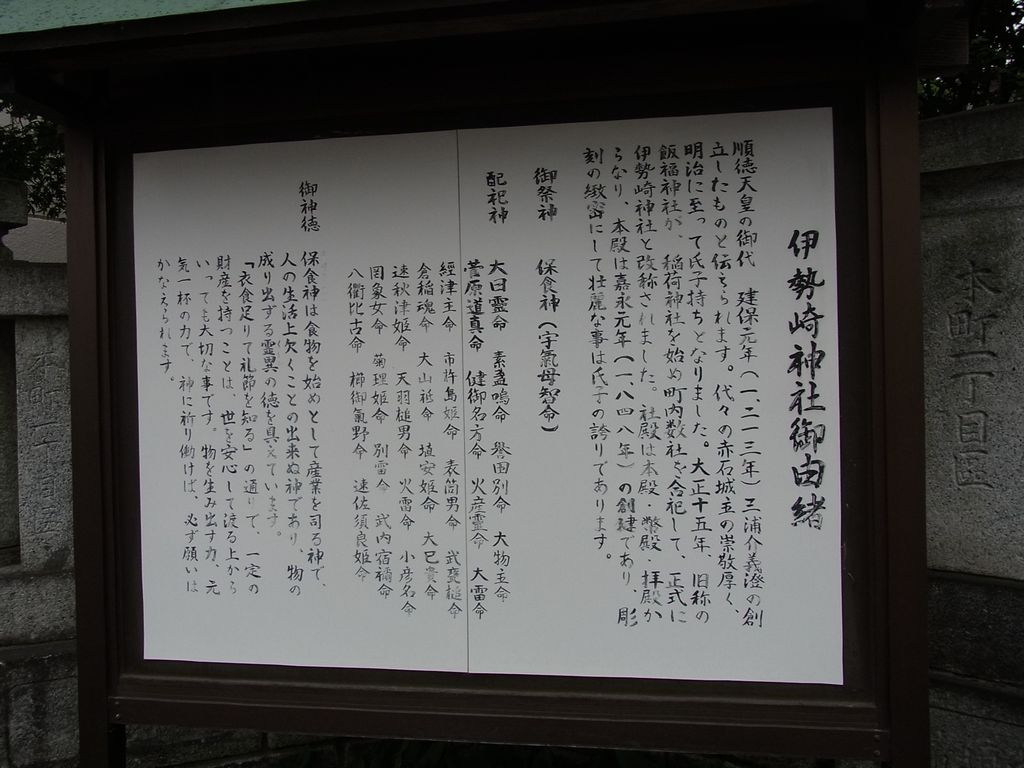 伊勢崎神社御由緒
順徳天皇の御代 建保元年(一、二一三年)三浦介義澄の創
立したものと伝えられます。代々の赤石城主の崇敬厚く、
明治に至って氏子持ちとなりました。大正十五年、旧称の
飯福神社が、稲荷神社を始め町内数社を合祀して、正式に
伊勢崎神社と改称されました。社殿は本殿・幣殿・拝殿か
らなり、本殿は嘉永元年(一、八四八年)の創建であり、彫
刻の緻密にして壮麗な事は氏子の誇りであります。
御祭神 保食神(宇氣母智命)
配祀神 大日霊命 素盞嗚命 誉田別命 大物主命
菅原道真命 健御名方命 火産霊命 大雷命
經津主命 市杵島姫命 表筒男命 武甕槌命
倉稲魂命 大山祗命 埴安姫命 大己貴命
速秋津姫命 天羽槌男命 火雷命 小彦名命
罔象女命 菊理姫命 別雷命 武内宿禰命
八衢比古命 櫛御氣野命 速佐須良姫命
御神徳 保食神は食物を始めとして産業を司る神で、
人の生活上欠くことの出来ぬ神であり、物の
成り出ずる霊異の徳を具えています。
「衣食足りて礼節を知る」の通りで、一定の
財産を持つことは、世を安心して渡る上から
いっても大切な事です。物を生み出す力、元
気一杯の力で、神に祈り働けば、必ず願いは
かなえられます。
本町一丁目区
本町二丁目区